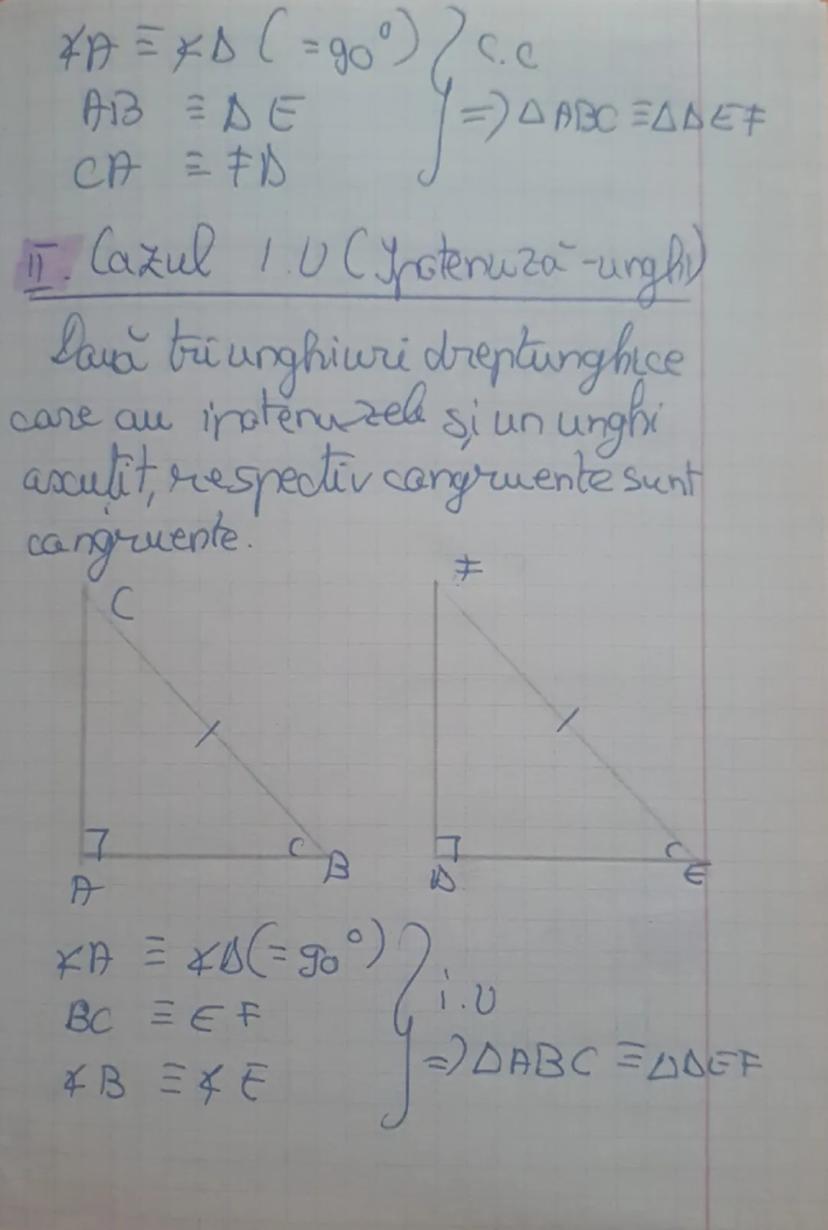 ∢A ≡ ∢D (=90°) } C.C
AB ≡ DE => ΔABC ≡ ΔDEF
CA ≡ FD
II. Cazul I.U (Ipotenuză-unghi)
Două triunghiuri dreptunghice
care au ipotenuzele și un unghi
ascuțit, respectiv congruente sunt
congruente.
C F
A B D E
∢A ≡ ∢D (=90°) } i.U
BC ≡ EF
∢B ≡ ∢E => ΔABC ≡ ΔDEF